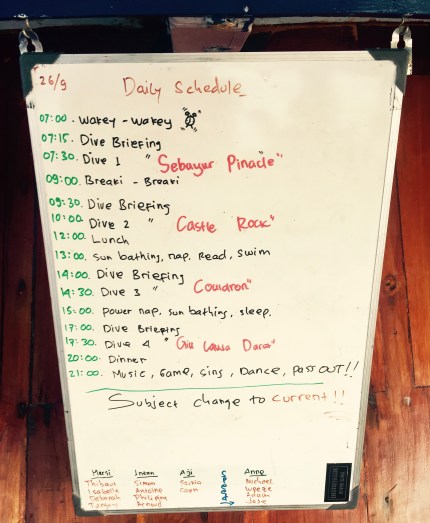 26/9 Daily Schedule
07:00. Wakey - Wakey
07:15. Dive Briefing
07:30. Dive 1 " Sebayur Pinacle"
09:00. Breaki - Breaki
09:30. Dive Briefing
10:00. Dive 2 " Castle Rock"
12:00. Lunch
13:00. Sun bathing, nap. Read, Swim
14:00. Dive Briefing
14:30. Dive 3 " Couldron"
15:00. Power nap, sun bathing, sleep.
17:00. Dive Briefing
17:30. Dive 4 "Gili Lawa Darat"
20:00. Dinner
21:00. Music, Game, Sing, Dance, Pass OUT!!
Subject change to current!!
Marsi Aji Anne
Thibaut Simon Michael
Isabelle Antoine
Deborah Philippe Adam
Arnaud Jose